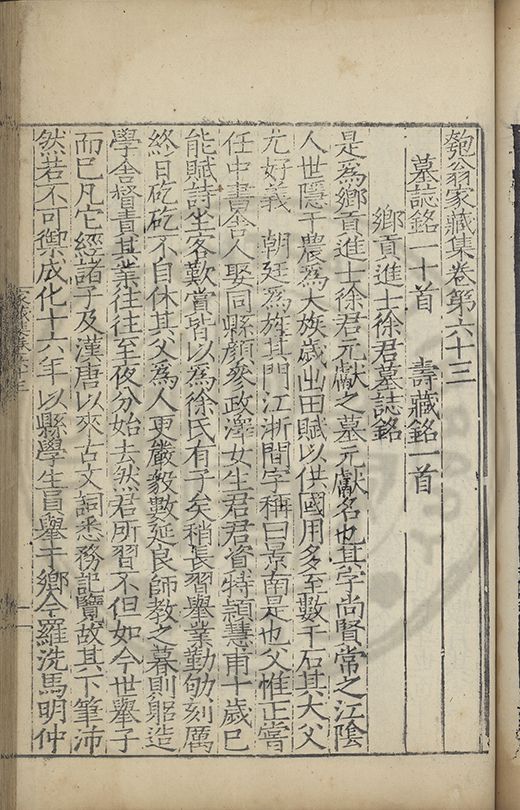 匏翁家藏集卷第六十三
墓誌銘一十首　壽藏銘一首
鄉貢進士徐君墓誌銘
是爲鄉貢進士徐君元獻之墓元獻名也其字尚賢常之江陰
人世隱于農爲大族歲出田賦以供國用多至數千石其大父
尤好義　朝廷爲旌其門江浙間字稱曰景南是也父惟正嘗
任中書舍人娶同縣顔叅政澤女生君君資特穎慧甫十歲已
能賦詩坐客歎賞皆以爲徐氏有子矣稍長習舉業勤劬刻厲
終日矻矻不自休其父爲人更嚴毅數延良師教之暮則躬造
學舍督責其業往往至夜分始去然君所習不但如今世舉子
而已凡它經諸子及漢唐以來古文詞悉務記覽故其下筆沛
然若不可禦成化十六年以縣學生員舉于鄉今羅洗馬明仲